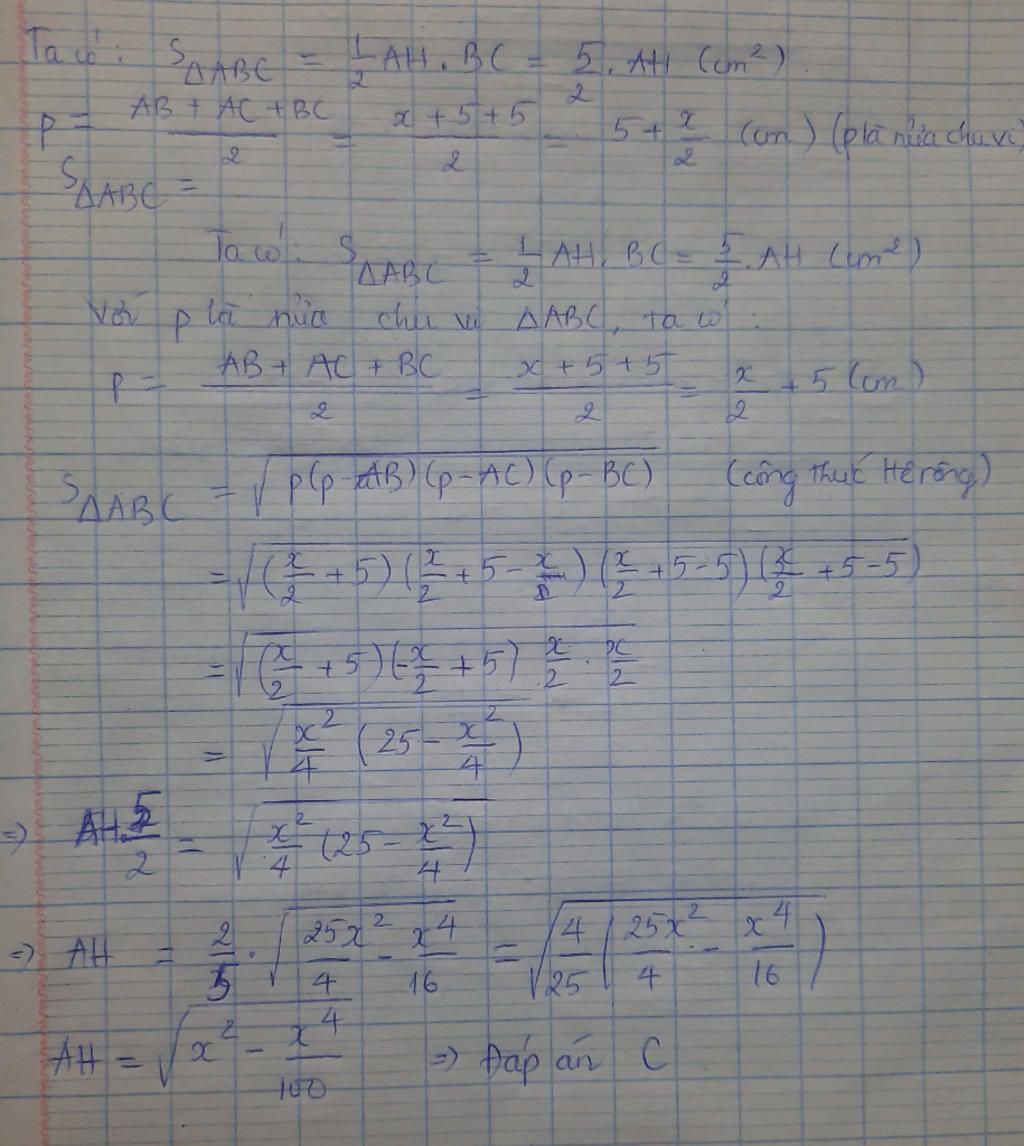 Ta có: S△ABC = 1/2 AH . BC = 5/2 . AH (cm²)
p = (AB + AC + BC)/2 = (x + 5 + 5)/2 = 5 + x/2 (cm) (p là nửa chu vi)
S△ABC =
Ta có: S△ABC = 1/2 AH . BC = 5/2 . AH (cm²)
Với p là nửa chu vi △ABC, ta có:
p = (AB + AC + BC)/2 = (x + 5 + 5)/2 = x/2 + 5 (cm)
S△ABC = √(p(p-AB)(p-AC)(p-BC)) (công thức Hê rông)
= √((x/2 + 5)(x/2 + 5 - x)(x/2 + 5 - 5)(x/2 + 5 - 5))
= √((x/2 + 5)(-x/2 + 5) x/2 . x/2)
= √(x²/4 (25 - x²/4))
⇒ AH . 5/2 = √(x²/4 (25 - x²/4))
⇒ AH = 2/5 . √(25x²/4 - x⁴/16) = √(4/25 (25x²/4 - x⁴/16))
AH = √(x² - x⁴/100) ⇒ Đáp án C